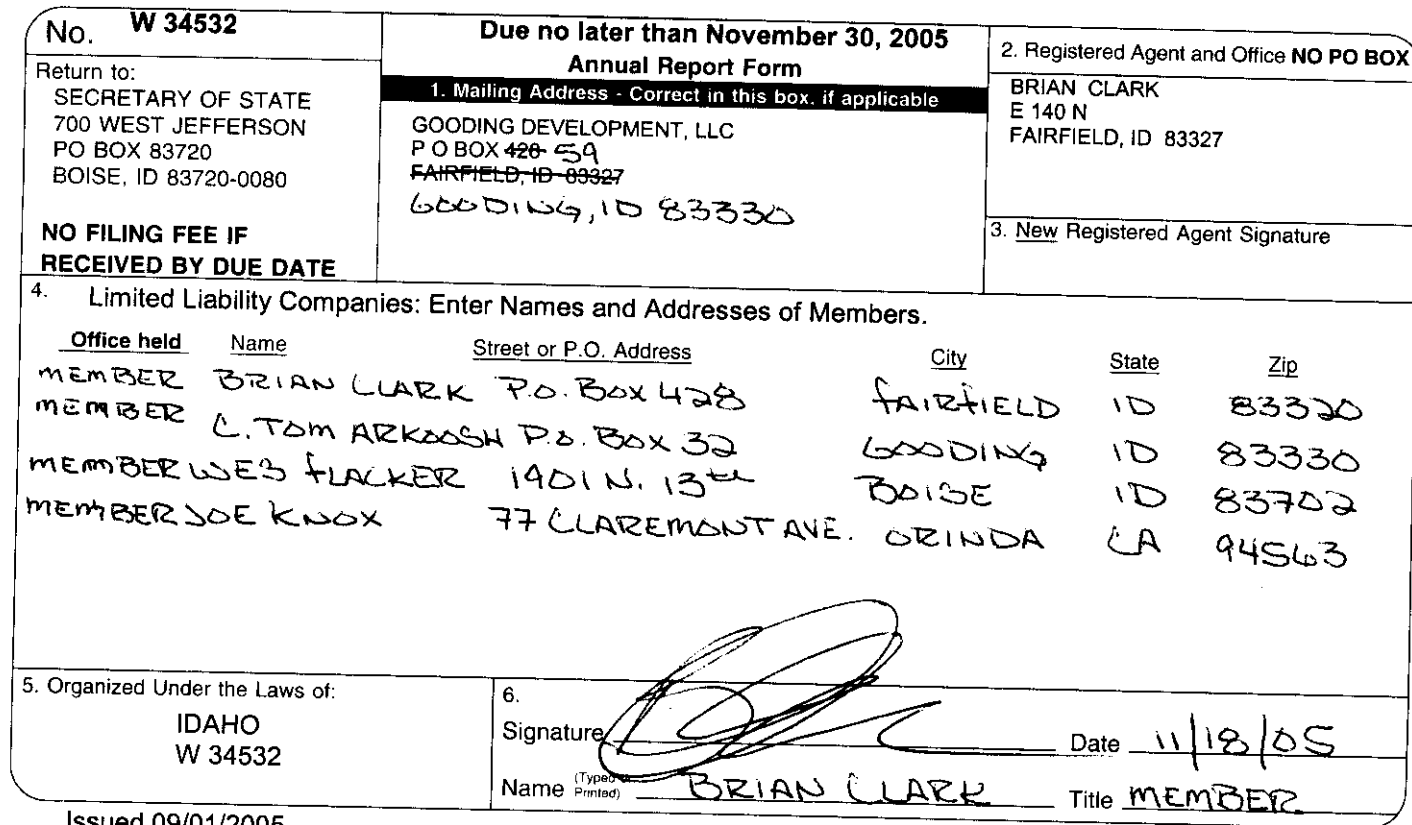 No. W 34532
Return to:
SECRETARY OF STATE
700 WEST JEFFERSON
PO BOX 83720
BOISE, ID 83720-0080
NO FILING FEE IF
RECEIVED BY DUE DATE
Due no later than November 30, 2005
Annual Report Form
1. Mailing Address - Correct in this box, if applicable
GOODING DEVELOPMENT, LLC
P O BOX 428 59
FAIRFIELD, ID 83327
GOODING, ID 83330
2. Registered Agent and Office NO PO BOX
BRIAN CLARK
E 140 N
FAIRFIELD, ID 83327
3. New Registered Agent Signature
4. Limited Liability Companies: Enter Names and Addresses of Members.
Office held Name Street or P.O. Address City State Zip
MEMBER BRIAN CLARK P.O. BOX 428 FAIRFIELD ID 83320
MEMBER C. TOM ARKOOSH P.O. BOX 32 GOODING ID 83330
MEMBER WEB FLACKER 1901 N. 13th BOISE ID 83702
MEMBER JOE KNOX 77 CLAREMONT AVE. ORINDA CA 94563
5. Organized Under the Laws of:
IDAHO
W 34532
6.
Signature Date 11/18/05
Name (Typed or Printed) BRIAN CLARK Title MEMBER
Issued 09/01/2005